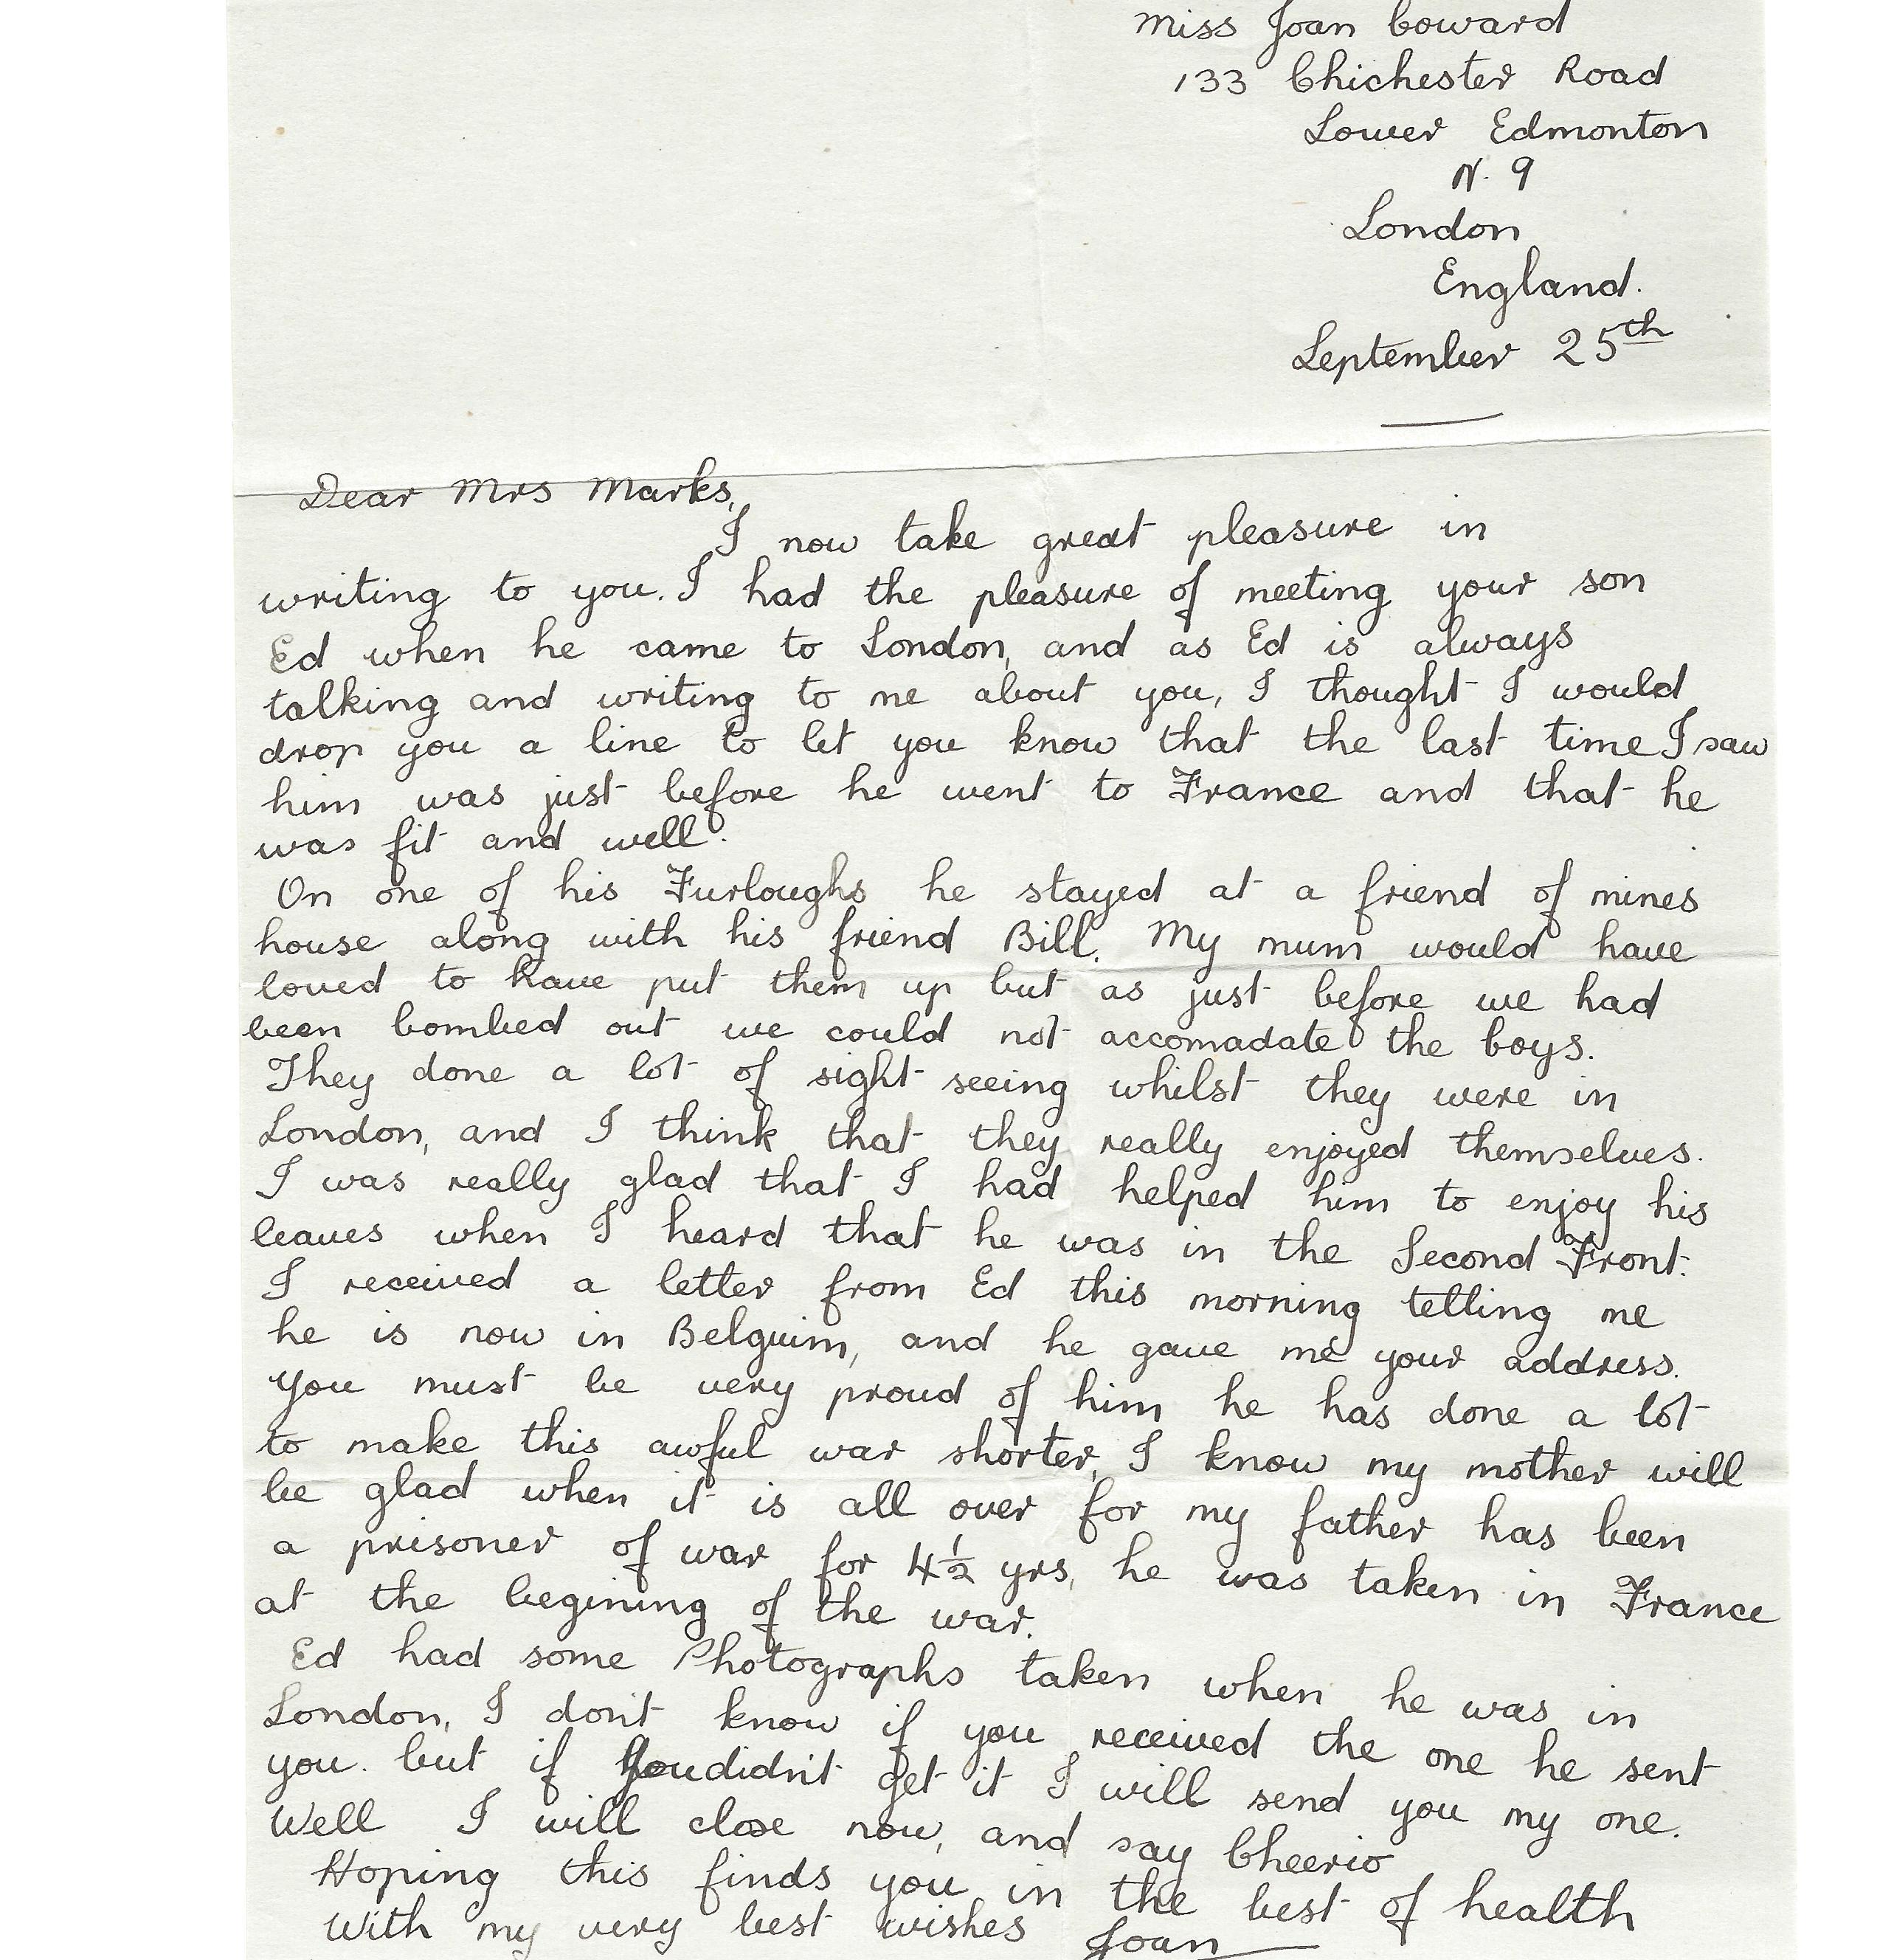 Miss Joan Coward
133 Chichester Road
Lower Edmonton
N. 9
London
England.
September 25th
Dear Mrs Marks,
I now take great pleasure in
writing to you. I had the pleasure of meeting your son
Ed when he came to London, and as Ed is always
talking and writing to me about you, I thought I would
drop you a line to let you know that the last time I saw
him was just before he went to France and that he
was fit and well.
On one of his Furloughs he stayed at a friend of mines
house along with his friend Bill. My mum would have
loved to have put them up but as just before we had
been bombed out we could not accomadate the boys.
They done a lot of sight seeing whilst they were in
London, and I think that they really enjoyed themselves.
I was really glad that I had helped him to enjoy his
leaves when I heard that he was in the Second Front.
I received a letter from Ed this morning telling me
he is now in Belguim, and he gave me your address.
You must be very proud of him he has done a lot
to make this awful war shorter, I know my mother will
be glad when it is all over for my father has been
a prisoner of war for 4½ yrs, he was taken in France
at the begining of the war.
Ed had some Photographs taken when he was in
London, I don't know if you received the one he sent
you. but if you didn't get it I will send you my one.
Well I will close now, and say Cheerio
Hoping this finds you in the best of health
With my very best wishes Joan